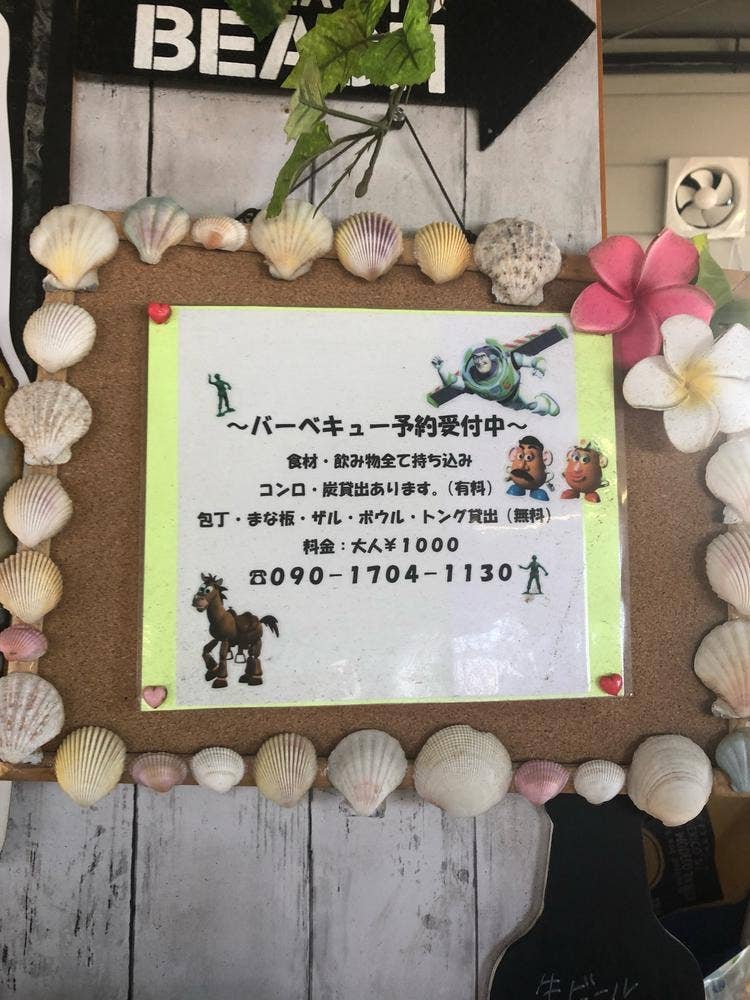 BEACH
～バーベキュー予約受付中～
食材・飲み物全て持ち込み
コンロ・炭貸出あります。(有料)
包丁・まな板・ザル・ボウル・トング貸出(無料)
料金：大人￥1000
☎090-1704-1130
生ビール